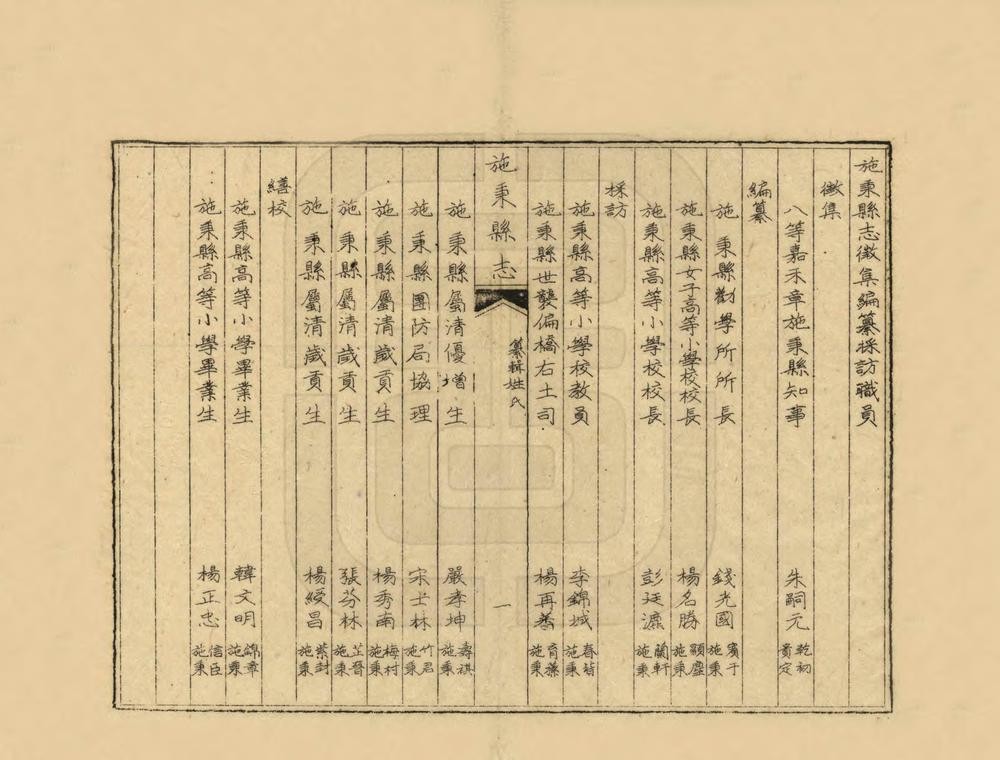 施秉縣志徵集編纂採訪職員
徵集
八等嘉禾章施秉縣知事 朱嗣元 乾初 貴定
編纂
施秉縣勸學所所長 錢光國 賓于 施秉
施秉縣女子高等小學校校長 楊名勝 顯塵 施秉
施秉縣高等小學校校長 彭廷 蘭軒 施秉
採訪
施秉縣高等小學校教員 李錦城 施秉
施秉縣世襲偏橋右土司 楊再 施秉
纂輯姓氏
施秉縣志 一
施秉縣屬清優增生 嚴孝坤 壽祺 施秉
施秉縣團防局協理 宋士林 竹君 施秉
施秉縣屬清歲貢生 楊秀南 梅村 施秉
施秉縣屬清歲貢生 張芬林 芷唇 施秉
施秉縣屬清歲貢生 楊綬昌 紫封 施秉
繕校
施秉縣高等小學畢業生 韓文明 錦章 施秉
施秉縣高等小學畢業生 楊正忠 信臣 施秉